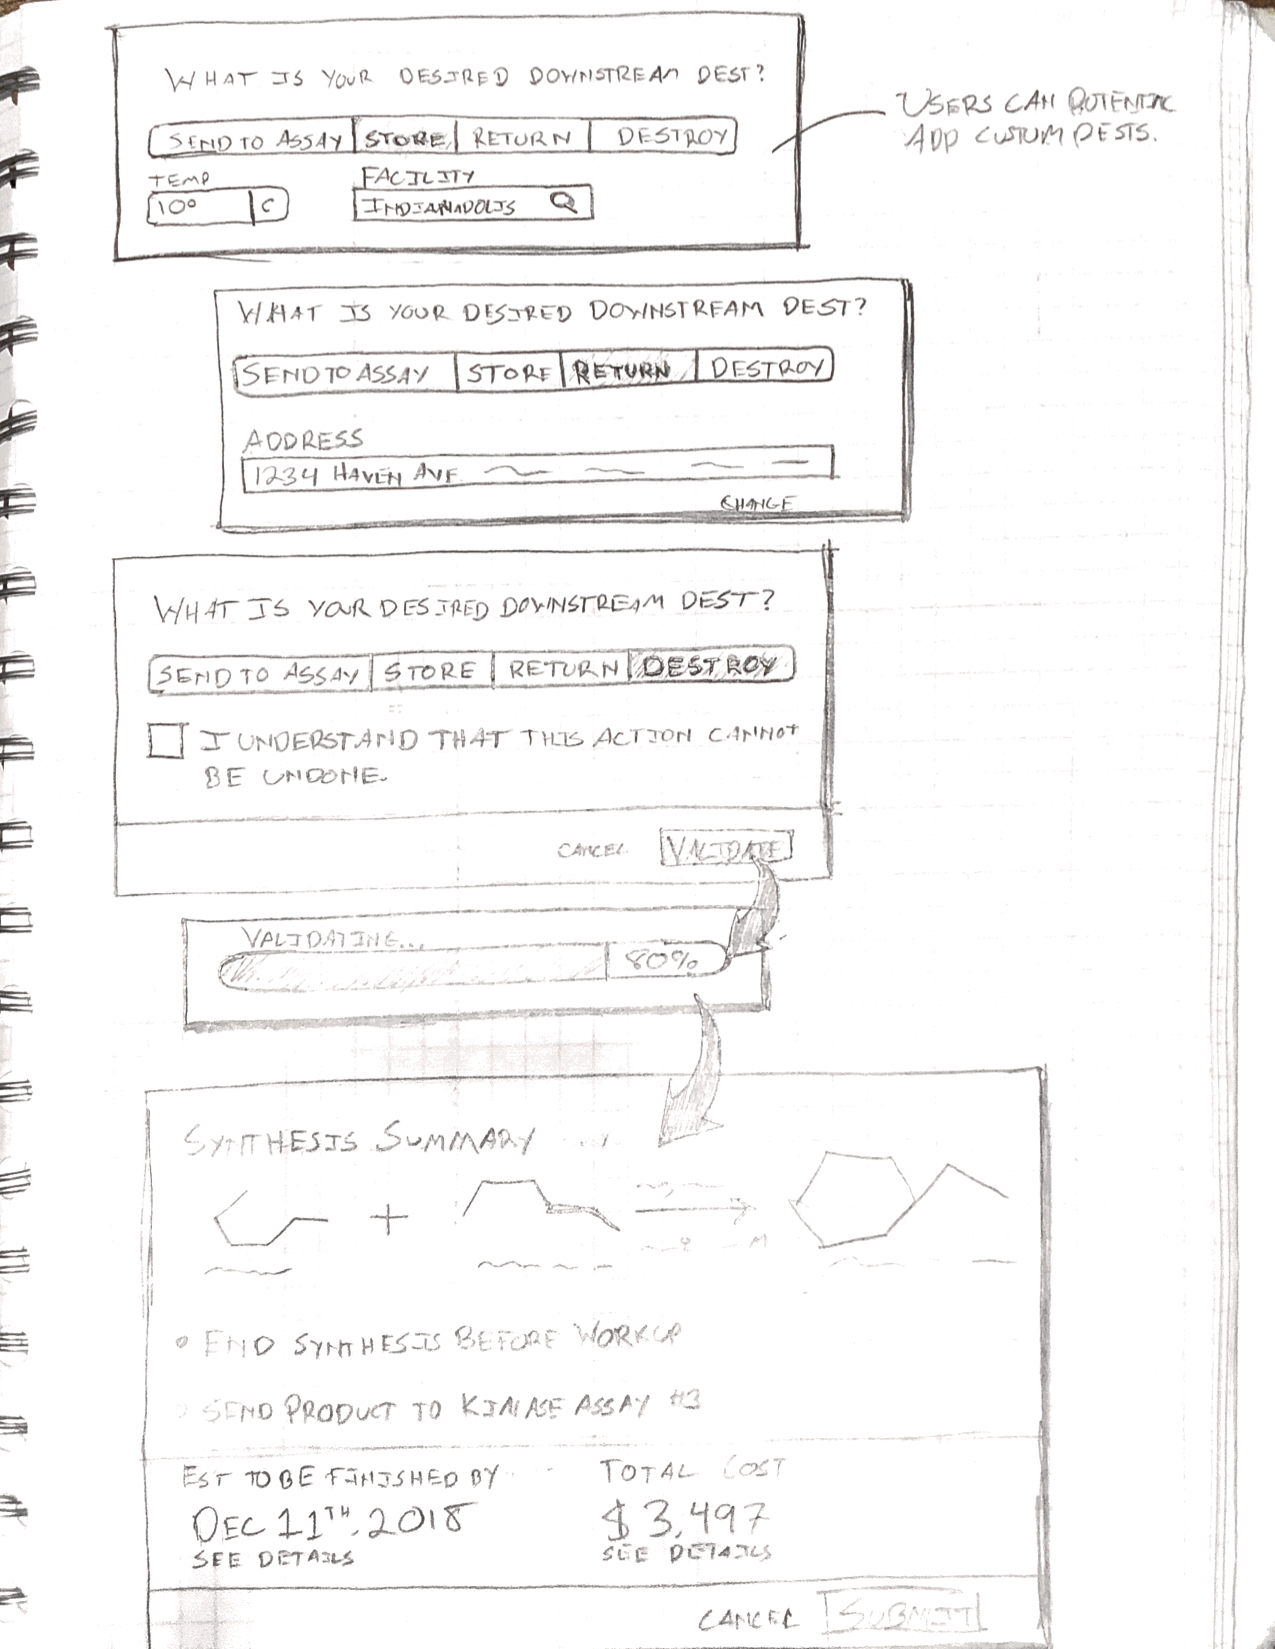 WHAT IS YOUR DESIRED DOWNSTREAM DEST?
SEND TO ASSAY STORE RETURN DESTROY
TEMP FACILITY
10° C INDIANAPOLIS
USERS CAN
ADD CUSTOM DESTS.
WHAT IS YOUR DESIRED DOWNSTREAM DEST?
SEND TO ASSAY STORE RETURN DESTROY
ADDRESS
1234 HAVEN AVE.
CHANGE
WHAT IS YOUR DESIRED DOWNSTREAM DEST?
SEND TO ASSAY STORE RETURN DESTROY
I UNDERSTAND THAT THIS ACTION CANNOT
BE UNDONE.
CANCEL VALIDATE
VALIDATING...
80%
SYNTHESIS SUMMARY
+
• END SYNTHESIS BEFORE WORKUP
• SEND PRODUCT TO KINASE ASSAY #3
EST TO BE FINISHED BY TOTAL COST
DEC 11TH, 2018 $3,497
SEE DETAILS SEE DETAILS
CANCEL SUBMIT